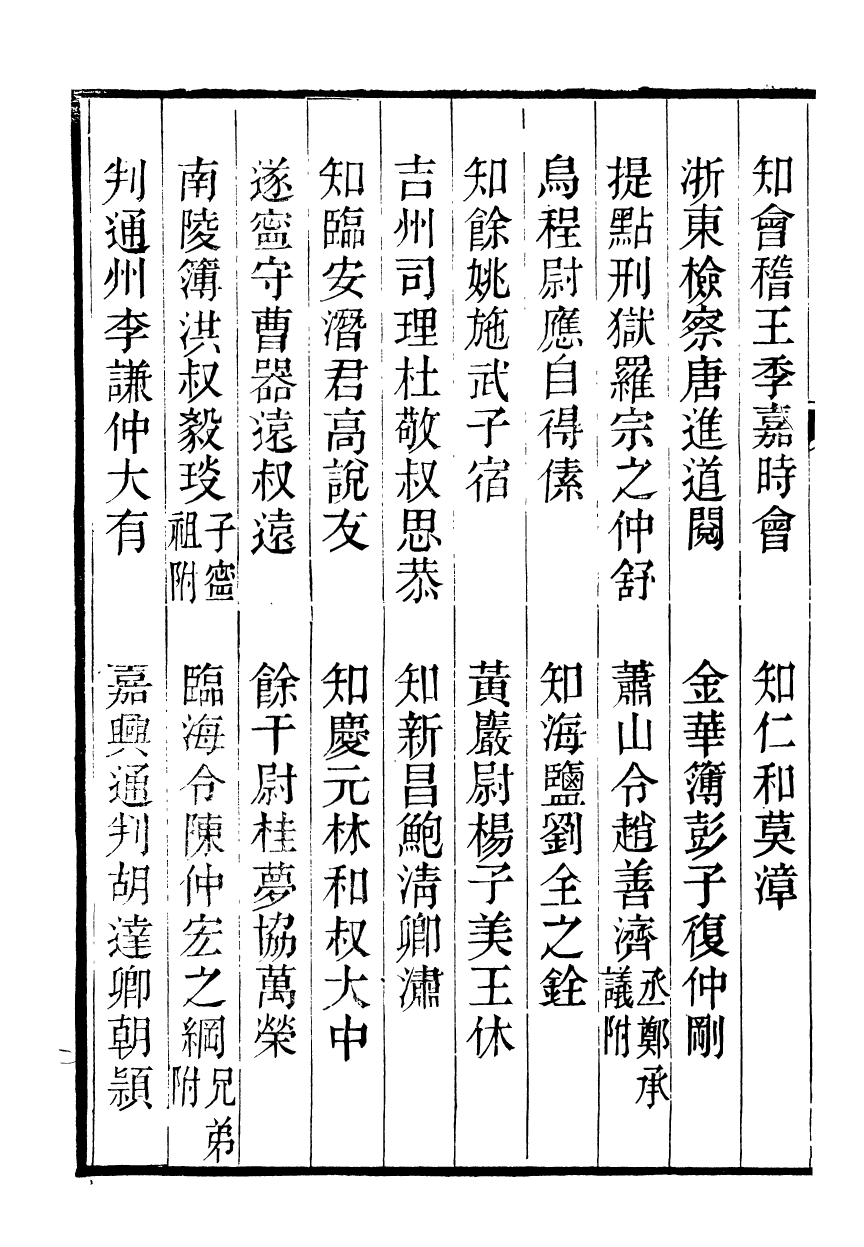 知會稽王季嘉時會　知仁和莫漳
浙東檢察唐進道閱　金華簿彭子復仲剛
提點刑獄羅宗之仲舒　蕭山令趙善濟丞鄭承議附
烏程尉應自得傃　知海鹽劉全之銓
知餘姚施武子宿　黃巖尉楊子美王休
吉州司理杜敬叔思恭　知新昌鮑清卿潚
知臨安潛君高說友　知慶元林和叔大中
遂寍守曹器遠叔遠　餘干尉桂夢協萬榮
南陵簿洪叔毅琰子寍祖附　臨海令陳仲宏之綱兄弟附
判通州李謙仲大有　嘉興通判胡達卿朝頴